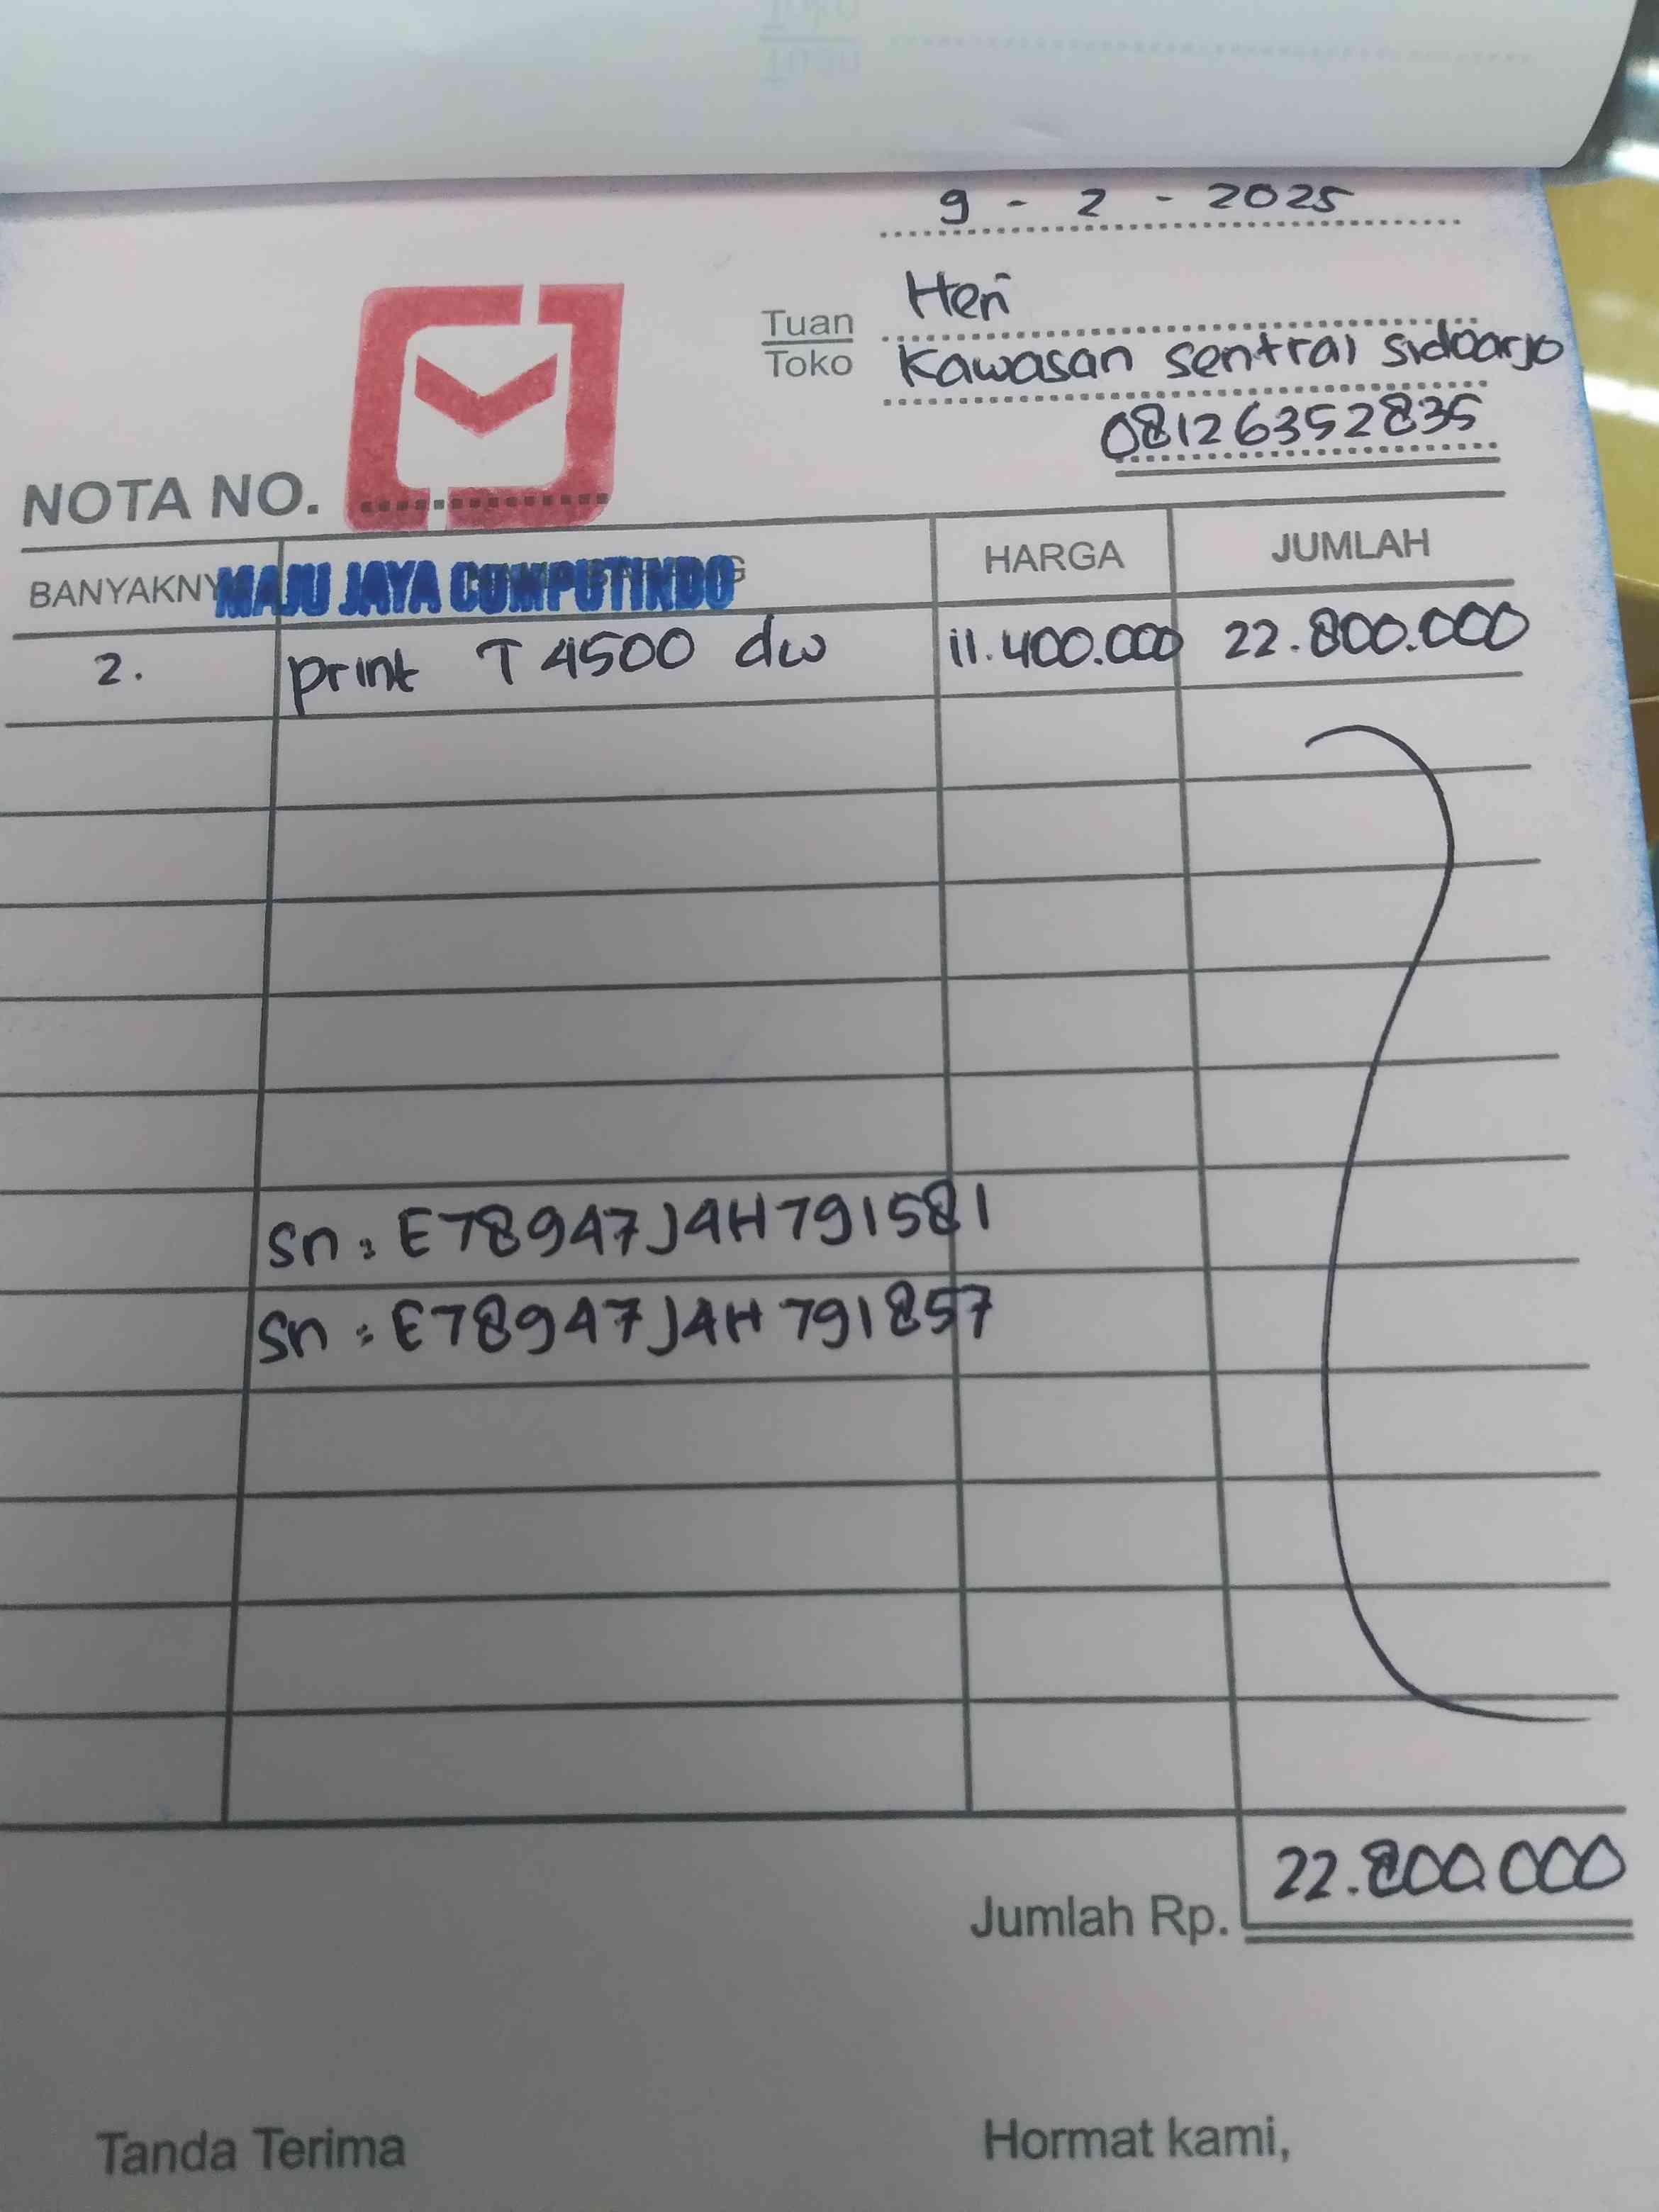 9 - 2 - 2025
Tuan
Toko
Heri
Kawasan Sentral Sidoarjo
08126352835
NOTA NO.
BANYAKNY
MAJU JAYA COMPUTINDO
HARGA
JUMLAH
2. print T 4500 dw 11.400.000 22.800.000
Sn : E78947J4H791581
Sn : E78947J4H791857
Jumlah Rp. 22.800.000
Tanda Terima
Hormat kami,